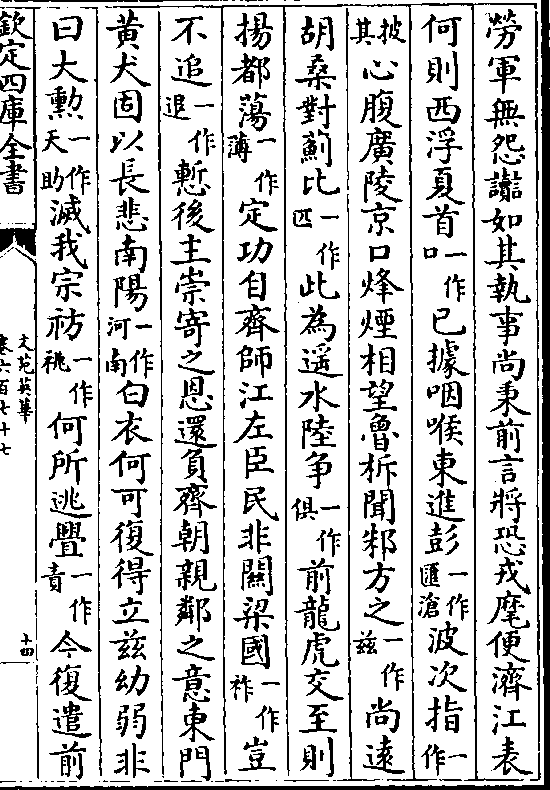 勞軍無怨讟如其執事尚秉前言將恐戎麾便濟江表
何則西浮夏首一作口已據咽喉東進彭一作匯滄波次指一作
披其心腹廣陵京口烽煙相望魯柝聞邾方之一作兹尚遠
胡桑對薊比一作匹此為遥水陸争一作俱前龍虎交至則
揚都蕩一作薄定功自齊師江左臣民非關梁國一作祚豈
不追一作退慙後主崇寄之恩還負齊朝親鄰之意東門
黄犬固以長悲南陽一作河南白衣何可復得立兹幼弱非
曰大勲一作天助滅我宗祊一作祧何所逃舋一作責今復遣前
欽定四庫全書
文苑英華
卷六百七十七
十四